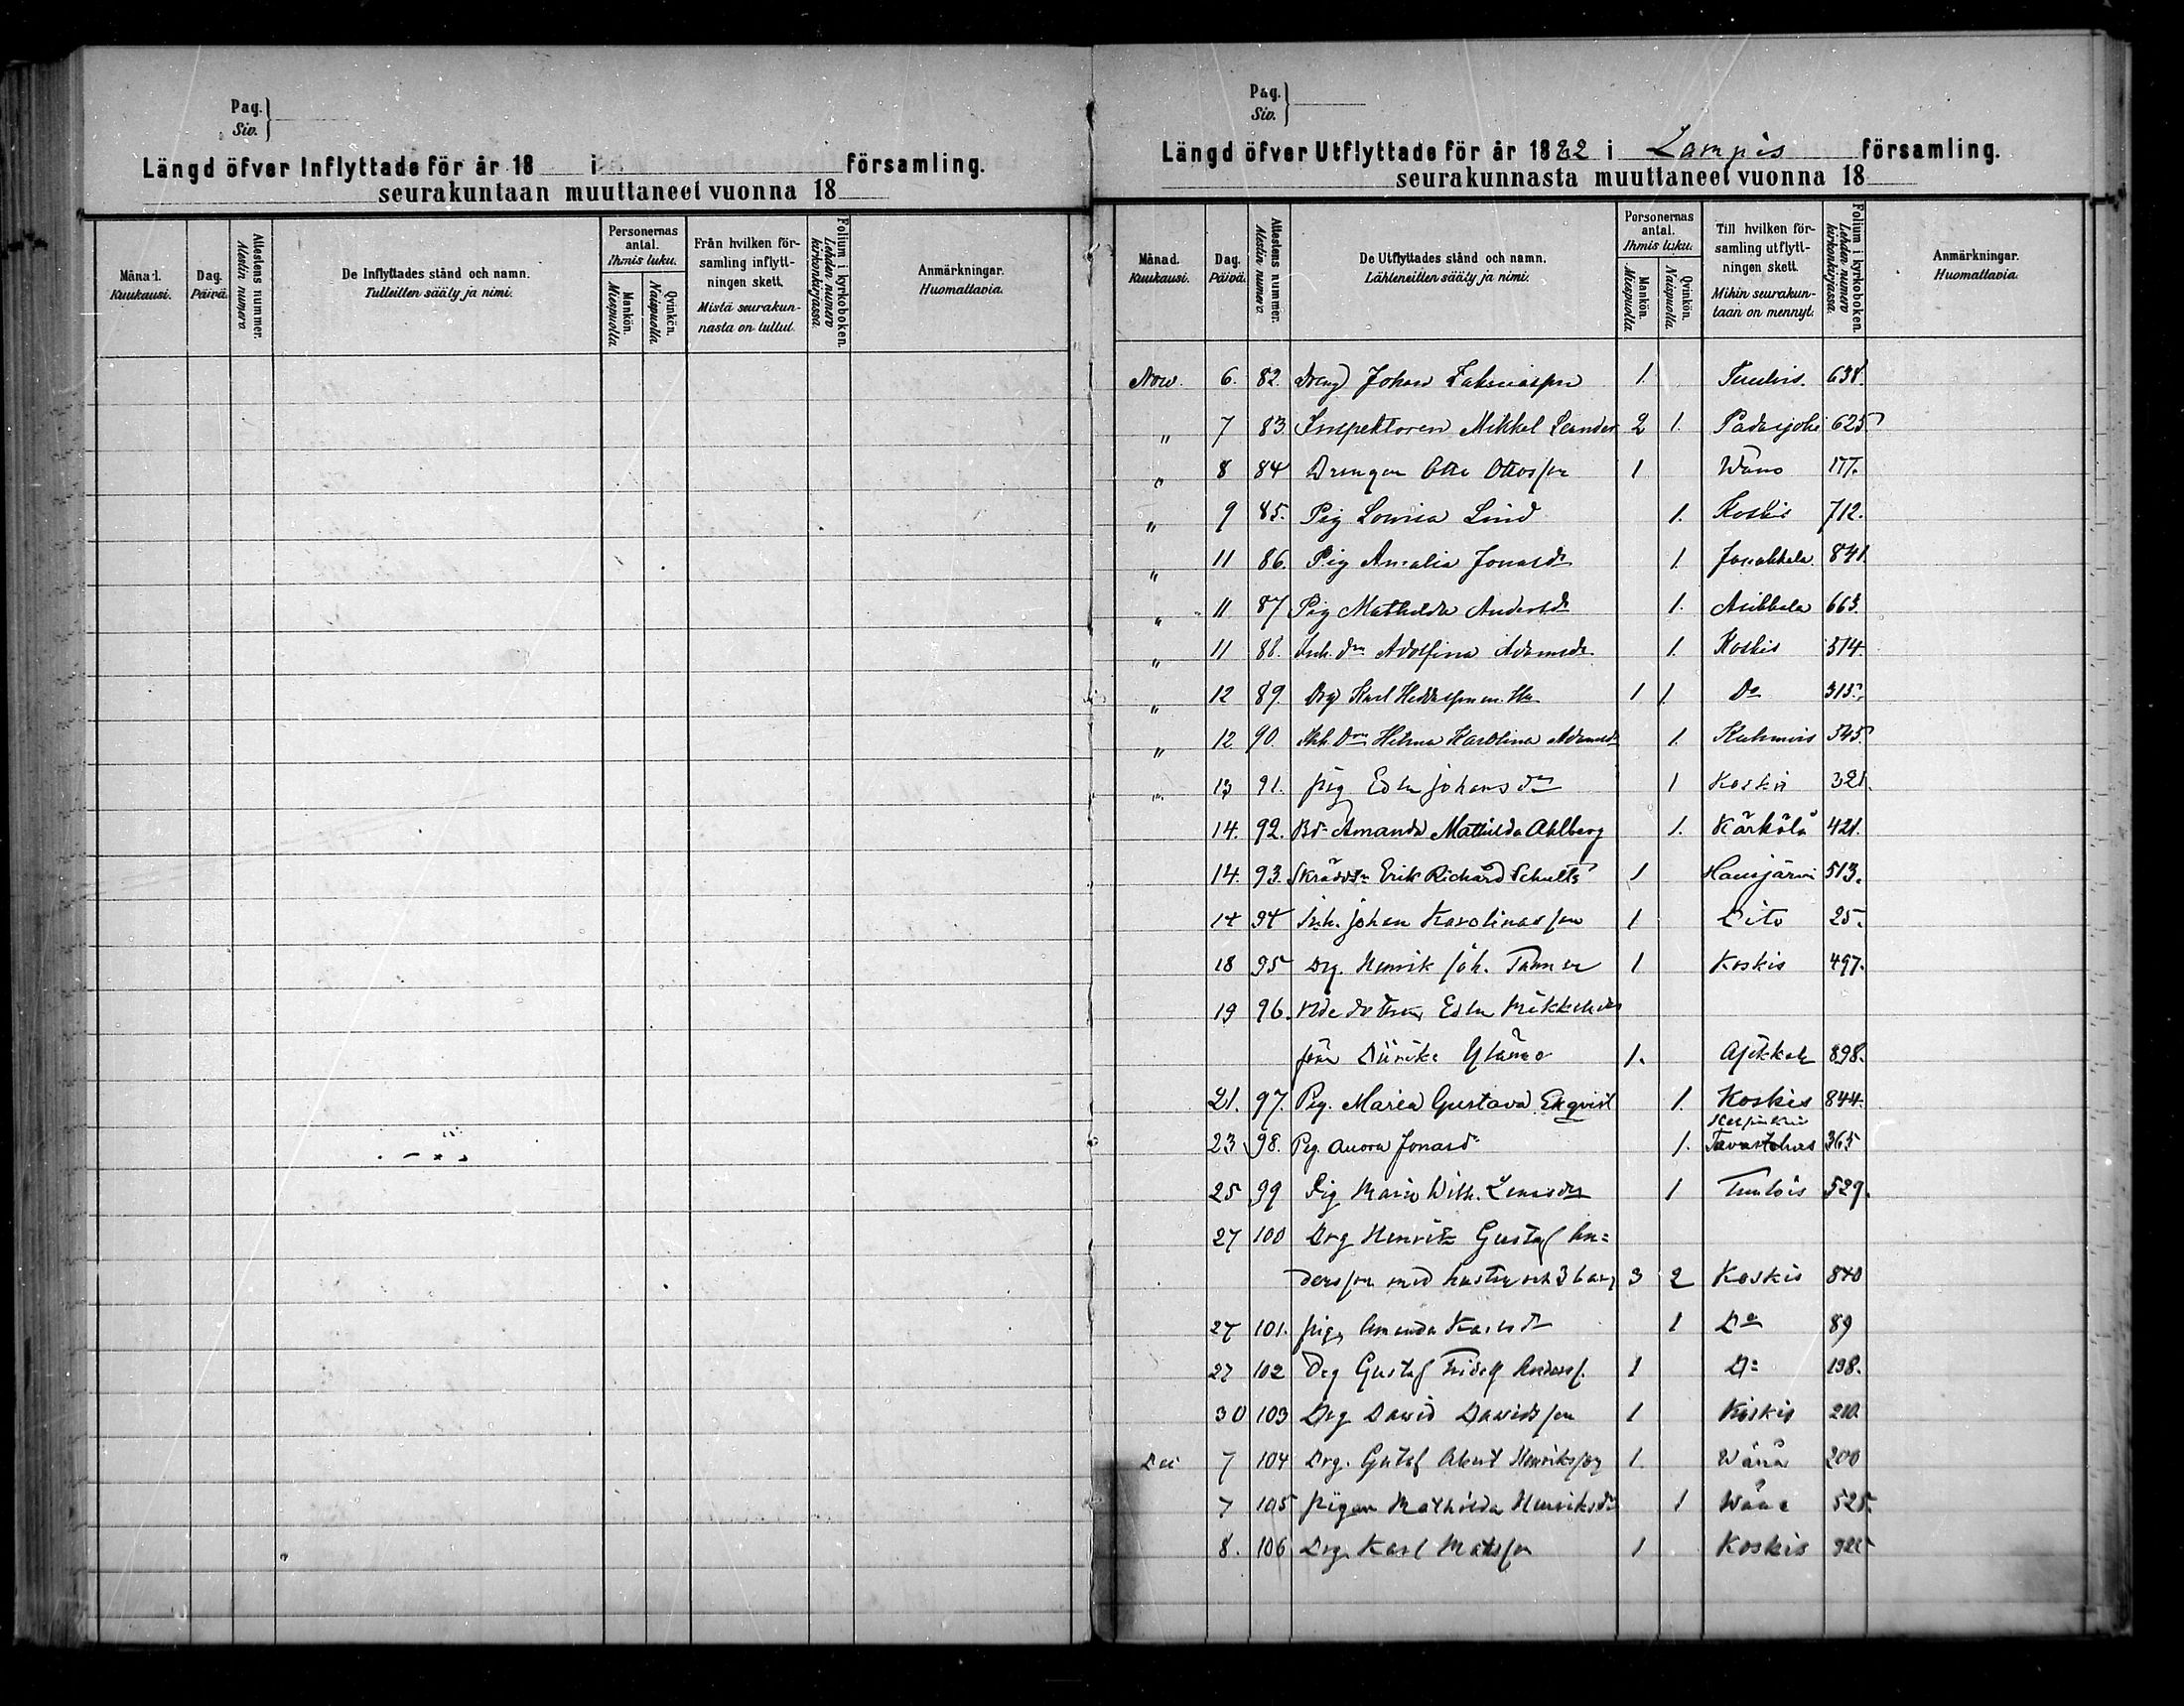 Pag.
Siv.
Längd öfver Inflyttade för år 18 i församling.
seurakuntaan muuttaneet vuonna 18
Månad. Kuukausi.
Dag. Päivä.
Attestens nummer. Alestin numero.
De Inflyttades stånd och namn. Tulleitten sääty ja nimi.
Personernas antal. Ihmis luku.
Mankön. Miespuolta
Qvinkön. Naispuolta
Från hvilken församling inflyttningen skett. Mistä seurakunnasta on tullut.
Folium i kyrkoboken. Lehden numero kirkonkirjassa.
Anmärkningar. Huomattavia.
Pag.
Siv.
Längd öfver Utflyttade för år 1882 i Lampis församling.
seurakunnasta muuttaneet vuonna 18
Månad. Kuukausi.
Dag. Päivä.
Attestens nummer. Alestin numero.
De Utflyttades stånd och namn. Lähteneitten sääty ja nimi.
Personernas antal. Ihmis luku.
Mankön. Miespuolta.
Qvinkön. Naispuolta
Till hvilken församling utflyttningen skett. Mihin seurakuntaan on mennyt.
Folium i kyrkoboken. Lehden numero kirkonkirjassa.
Anmärkningar. Huomattavia.
Nov. 6. 82. Johan 1. Tuulois. 638.
" 7 83. Inspektoren Mikkel Leander 2 1. Padasjoki 625
" 8 84 Drengen Otto Ottosson 1 Wånå 177.
" 9 85. Pig Lovisa Lind 1. Koskis 712.
" 11 86. Pig Amalia Jonasdr 1. Janakkala 841.
" 11 87 Pig Mathilda Andersdr 1. Asikkala 663.
" 11 88. Inh. dr Adolfina Adamsdr. 1. Koskis 514.
" 12 89. Drg Karl m. Hu 1 1. Do 315.
" 12 90. Inh. Dr Helena Karolina Adamsdr 1. Kuhmois 545.
" 13 91. pig Edla Johansdr 1 Koskis 321.
14. 92. Bdr Amanda Mathilda Ahlberg 1. Kärkölä 421.
14. 93. Erik Richard Schultz 1 Hausjärvi 513.
14 94 Inh. Johan Karolinasson 1 Dito 25.
18 95 Drg. Henrik Joh. 1 Koskis 497.
19 96. Edla Mikkelsdr
1. Asikkala 898.
21. 97. Pig. Maria Gustava Ekqvist 1. Koskis 844.
23 98. Pig. Aurora Jonasdr 1. Tavastehus 365
25 99 Pig Maria Wilh. 1 Tuulois 529.
27 100 Drg Henrik Gustaf An=
dersson med hustru och 3 barn 3 2 Koskis 840
27 101. pig. Amanda Karlsdr 1 Do 89
27 102 Drg Gustaf Fridolf Anderss. 1 Do 198.
30 103 Drg David Davidsson 1 Koskis 210.
Dec 7 104 Drg. Gustaf Albert Henriksson 1. Wånå 200
7 105 pigan Mathilda Henriksdr 1 Wånå 525.
8. 106 Drg. Karl Matsson 1 Koskis